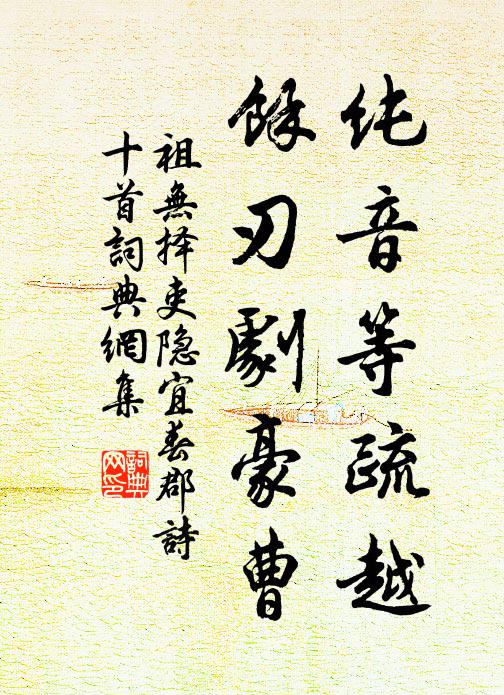 纯音等疏越
餘刃劇豪曹
祖無择吏隐宜春郡詩
十首詞典網集
詞典网印